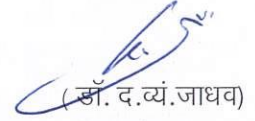 (डॉ. द.व्यं.जाधव)